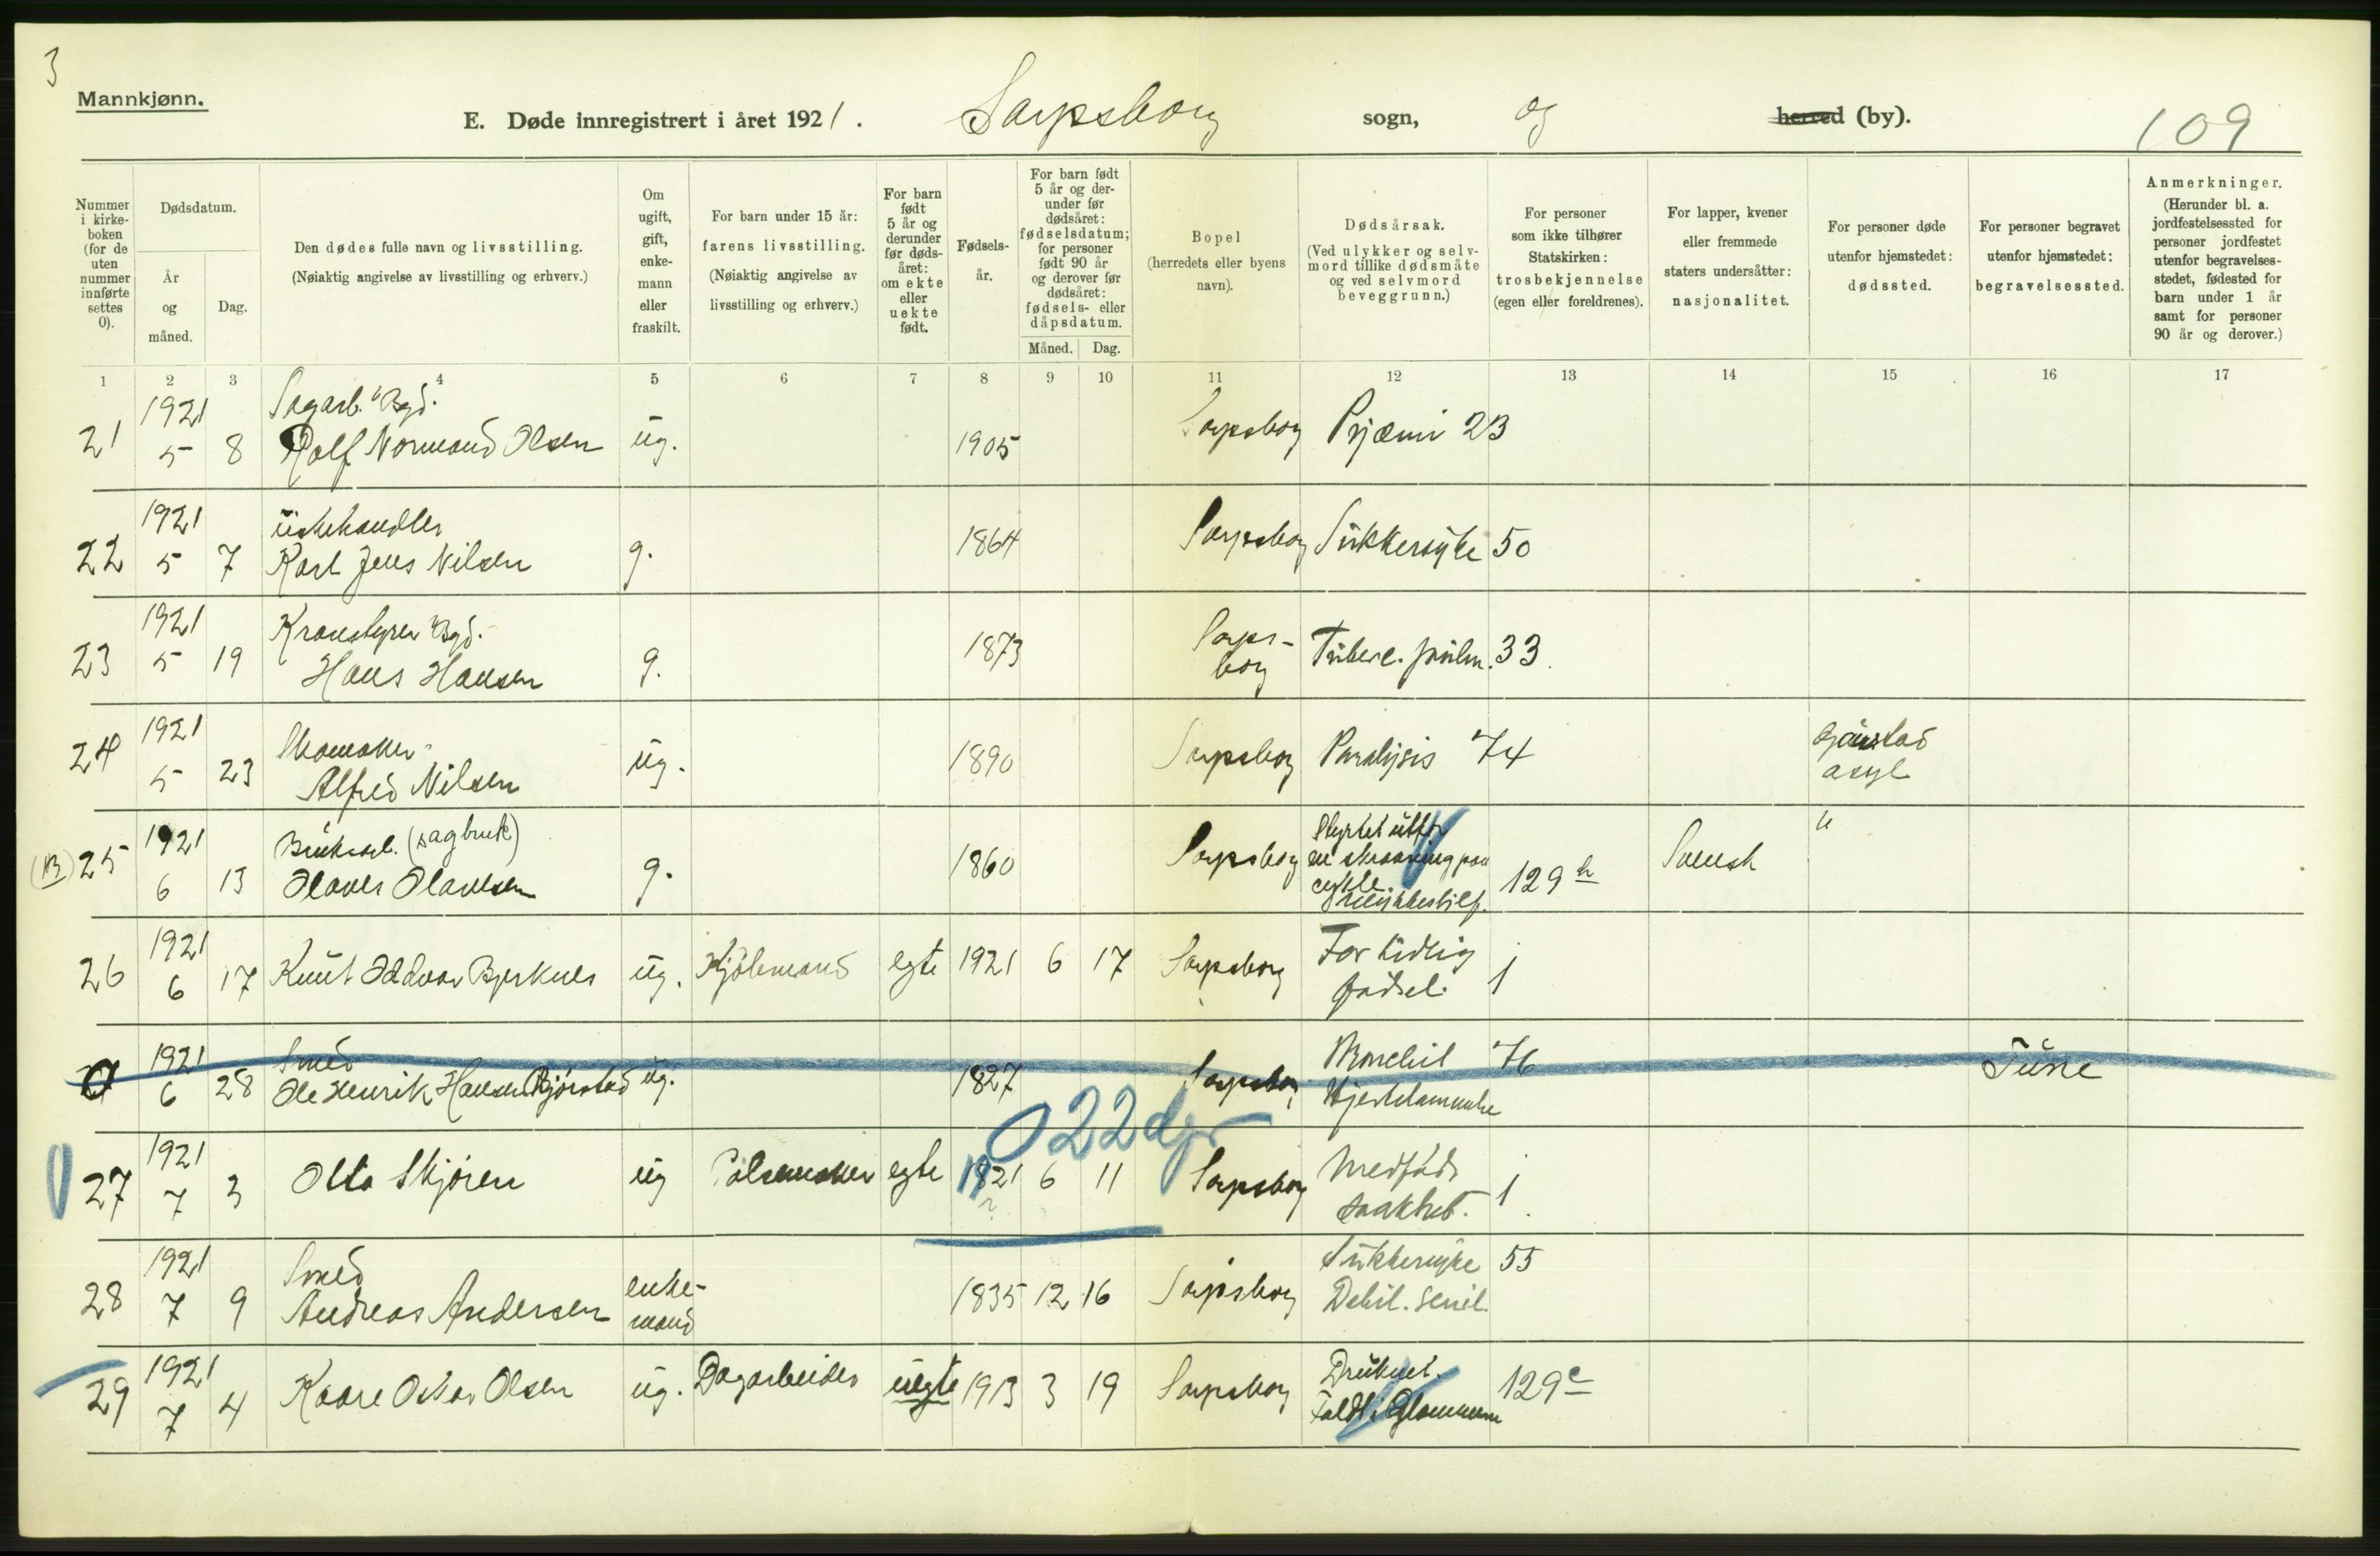 3
Mannkjønn.
E. Døde innregistrert i året 1921. Sarpsborg sogn, og herred (by). 109
Nummer i kirke-boken (for de uten nummer innførte settes 0).
Dødsdatum.
År og måned.
Dag.
Den dødes fulle navn og livsstilling.
(Nøiaktig angivelse av livsstilling og erhverv.)
Om ugift, gift, enke-mann eller fraskilt.
For barn under 15 år: farens livsstilling. (Nøiaktig angivelse av livsstilling og erhverv.)
For barn født 5 år og derunder før døds-året: om ekte eller uekte født.
Fødsels-år.
For barn født 5 år og der-under før dødsåret: fødselsdatum; for personer født 90 år og derover før dødsåret: fødsels- eller dåpsdatum.
Måned. Dag.
Bopel (herredets eller byens navn).
Dødsårsak. (Ved ulykker og selv-mord tillike dødsmåte og ved selvmord beveggrunn.)
For personer som ikke tilhører Statskirken: trosbekjennelse (egen eller foreldrenes).
For lapper, kvener eller fremmede staters undersåtter: nasjonalitet.
For personer døde utenfor hjemstedet: dødssted.
For personer begravet utenfor hjemstedet: begravelsessted.
Anmerkninger. (Herunder bl. a. jordfestelsessted for personer jordfestet utenfor begravelses-stedet, fødested for barn under 1 år samt for personer 90 år og derover.)
1 2 3 4 5 6 7 8 9 10 11 12 13 14 15 16 17
1921 Sagarb. Bgd.
21 5 8 Rolf Normand Olsen ug. 1905 Sarpsborg Pyæmi 23
1921
22 5 7 Karl Jens Nilsen g. 1864 Sarpsborg Sukkersyke 50
1921 Kranstyrer Bgd. Sarps-
23 5 19 Hans Hansen g. 1873 borg Tuberc. pulm. 33.
1921 Skomaker Gaustad
24 5 23 Alfred Nilsen ug. 1890 Sarpsborg Paralysis 74 asyl
1921 Bruksarb. (sagbruk) Styrtet utfor "
(13) 25 6 13 Olaves Olavesen g. 1860 Sarpsborg en skraaning paa 129 h Svensk
cykle.
1921 For tidlig
26 6 17 Knut Oddvar Bjerknes ug. Kjøbmand egte 1921 6 17 Sarpsborg fødsel. 1
1921 Smed Morchil 76 Tune
0 6 28 Ole Henrik Hansen Bjørstad ug. 1827 Sarpsborg Hjertelammelse
0 22 dgr
1921 Medfødt
27 7 3 Otto Skjøren ug Pølsemaker egte 1921 6 11 Sarpsborg svakhet. 1
1921 Smed enke- Sukkersyke 55
28 7 9 Andreas Andersen mand 1835 12 16 Sarpsborg Debil. senil.
1921 Druknet.
29 7 4 Kaare Oskar Olsen ug. Dagarbeider uegte 1913 3 19 Sarpsborg Faldt i Glommen 129 e